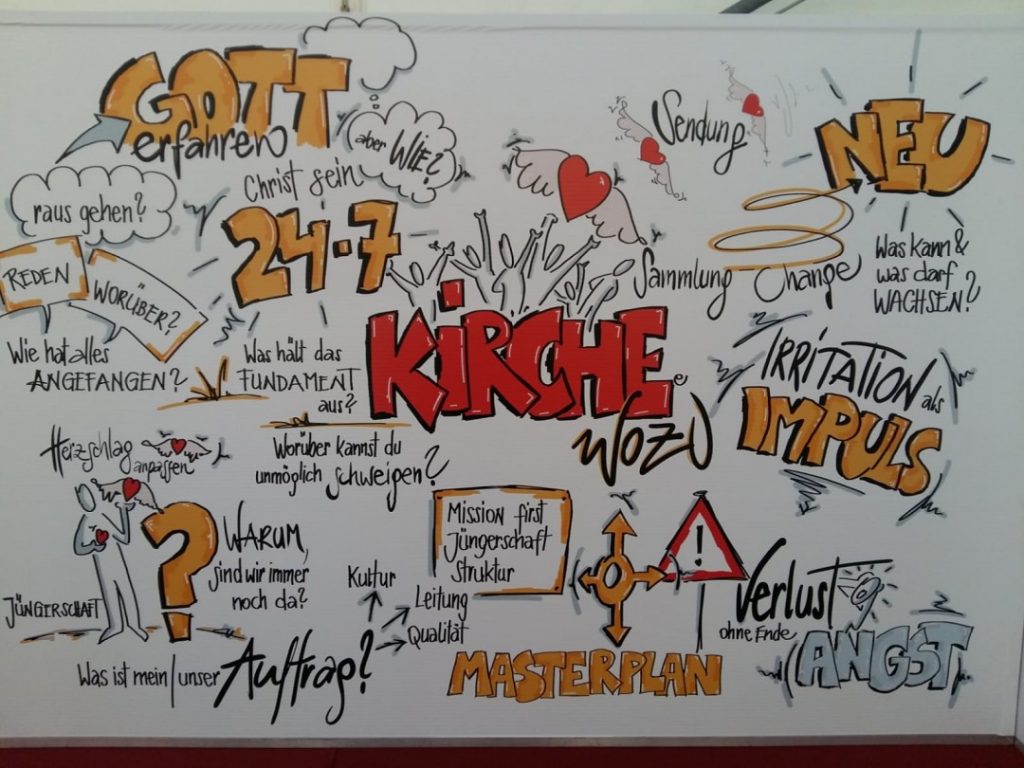 GOTT
erfahren
aber WIE?
raus gehen?
Christ sein
24-7
REDEN
WORÜBER?
Wie hat alles
ANGEFANGEN?
Was hält das
FUNDAMENT
aus?
Worüber kannst du
unmöglich schweigen?
KiRCHE
e
WOZU
Sendung
Sammlung
Change
NEU
Was kann &
was darf
WACHSEN?
IRRITATION als
IMPULS
Herzschlag
anpassen
JÜNGERSCHAFT
?
WARUM,
sind wir immer
noch da?
Was ist mein/unser
Auftrag?
Kultur
Leitung
Qualität
Mission first
Jüngerschaft
Struktur
MASTERPLAN
!
Verlust
ohne Ende
ANGST